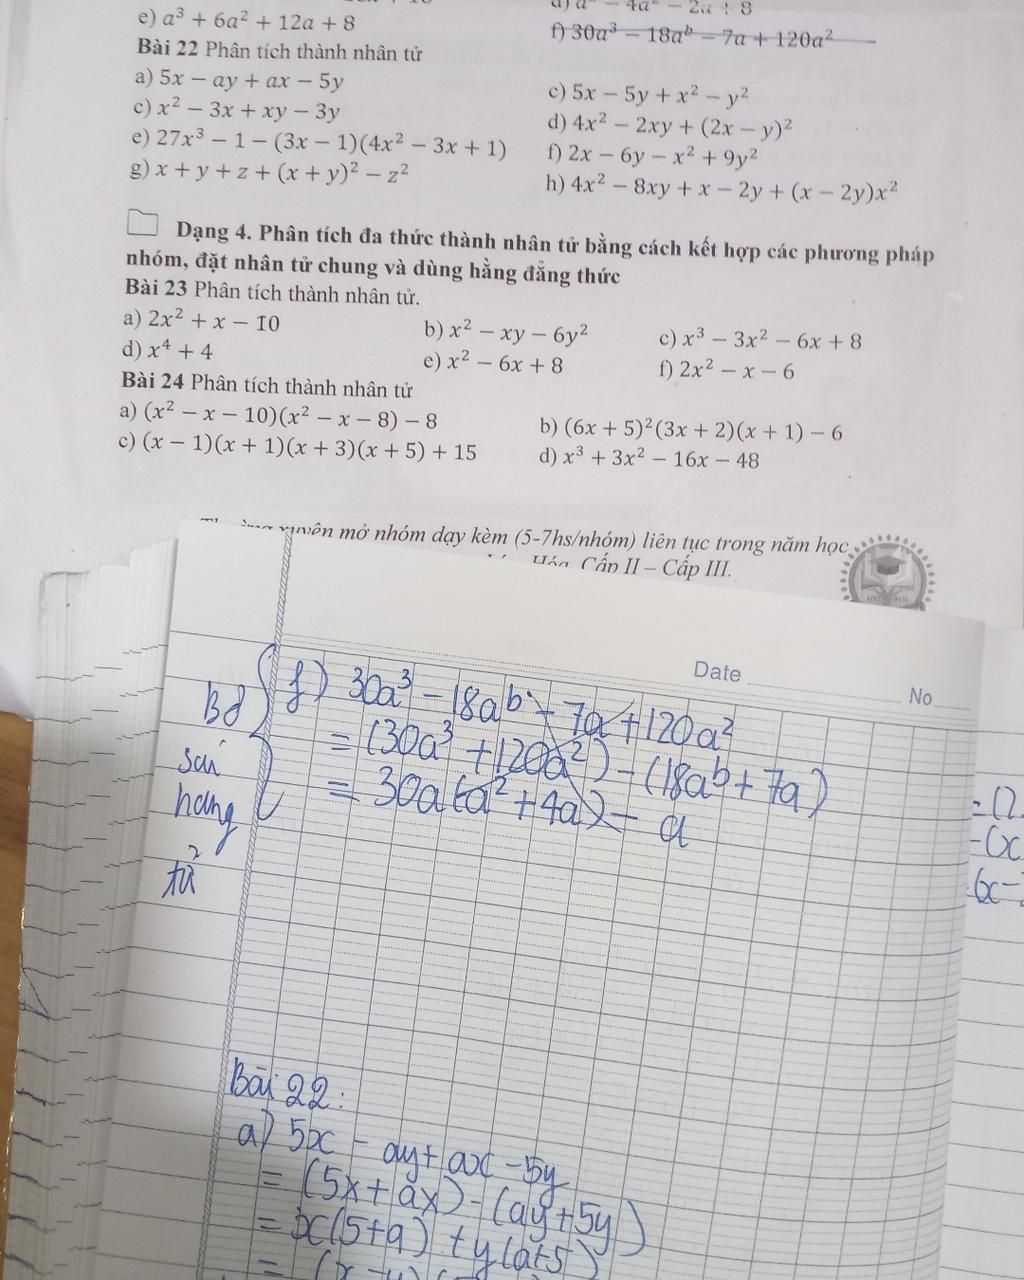 e) a³ + 6a² + 12a + 8
d) a³ − 4a² − 2a + 8
f) 30a³ − 18aᵇ − 7a + 120a²
Bài 22 Phân tích thành nhân tử
a) 5x − ay + ax − 5y
c) 5x − 5y + x² − y²
c) x² − 3x + xy − 3y
d) 4x² − 2xy + (2x − y)²
e) 27x³ − 1 − (3x − 1)(4x² − 3x + 1)
f) 2x − 6y − x² + 9y²
g) x + y + z + (x + y)² − z²
h) 4x² − 8xy + x − 2y + (x − 2y)x²
Dạng 4. Phân tích đa thức thành nhân tử bằng cách kết hợp các phương pháp
nhóm, đặt nhân tử chung và dùng hằng đẳng thức
Bài 23 Phân tích thành nhân tử.
a) 2x² + x − 10
b) x² − xy − 6y²
c) x³ − 3x² − 6x + 8
d) x⁴ + 4
e) x² − 6x + 8
f) 2x² − x − 6
Bài 24 Phân tích thành nhân tử
a) (x² − x − 10)(x² − x − 8) − 8
b) (6x + 5)²(3x + 2)(x + 1) − 6
c) (x − 1)(x + 1)(x + 3)(x + 5) + 15
d) x³ + 3x² − 16x − 48
xuyên mở nhóm dạy kèm (5-7hs/nhóm) liên tục trong năm học
Hóa Cấp II – Cấp III.
Date
No
f) 30a³ − 18aᵇ − 7a + 120a²
= (30a³ + 120a²) − (18aᵇ + 7a)
= 30a(a² + 4a) − a
Bđ
sai
hạng
tử
= (2
-(x
(x-
Bài 22:
a) 5x − ay + ax − 5y
= (5x + ax) − (ay + 5y)
= x(5 + a) + y(a+5)
= (x − y)